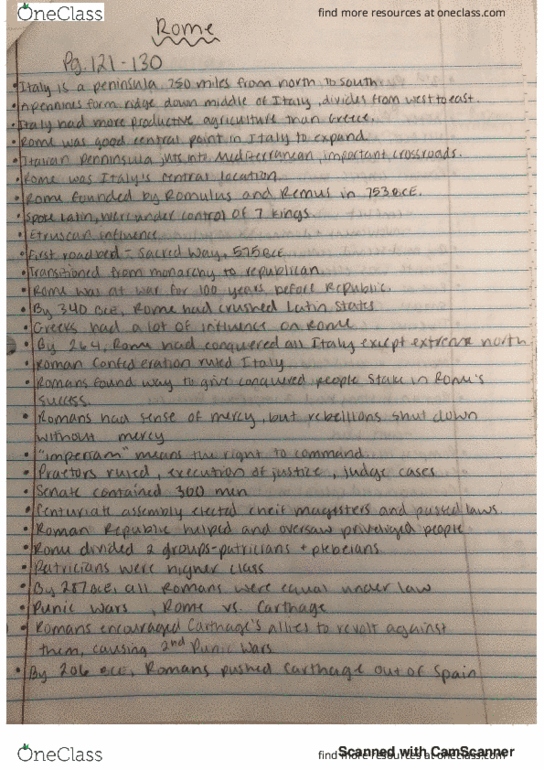 OneClass
find more resources at oneclass.com
Rome
Pg. 121-130
• Italy is a peninsula 750 miles from north to south
• Apennines form ridge down middle of Italy, divides from west to east.
• Italy had more productive agriculture than Greece.
• Rome was good central point in Italy to expand
• Italian Penninsula juts into Mediterranean, important crossroads.
• Rome was Italy's central location
• Rome founded by Romulus and Remus in 753 BCE.
• Spoke Latin, were under control of 7 kings.
• Etruscan influence
• First roadbed = Sacred Way, 575 BCE
• Transitioned from monarchy to republican
• Rome was at war for 100 years before Republic.
• By 340 BCE, Rome had crushed Latin States
• Greeks had a lot of influence on Rome
• By 264, Rome had conquered all Italy except extreme north
• Roman Confederation ruled Italy
• Romans found way to give conquered people stake in Rome's
success.
• Romans had sense of mercy, but rebellions shut down
without mercy
• "imperium" means the right to command
• Praetors ruled, execution of justice, judge cases
• Senate contained 300 men
• Centuriate assembly elected their magisters and passed laws.
• Roman Republic helped and oversaw priveledged people
• Rome divided 2 groups-patricians + plebeians.
• Patricians were higher class
• By 287 BCE, all Romans were equal under law
• Punic Wars, Rome vs. Carthage
• Romans encouraged Carthage's allies to revolt against
them, causing 2nd Punic Wars
• By 206 BCE, Romans pushed Carthage out of Spain
OneClass
find more resources at oneclass.com
Scanned with CamScanner